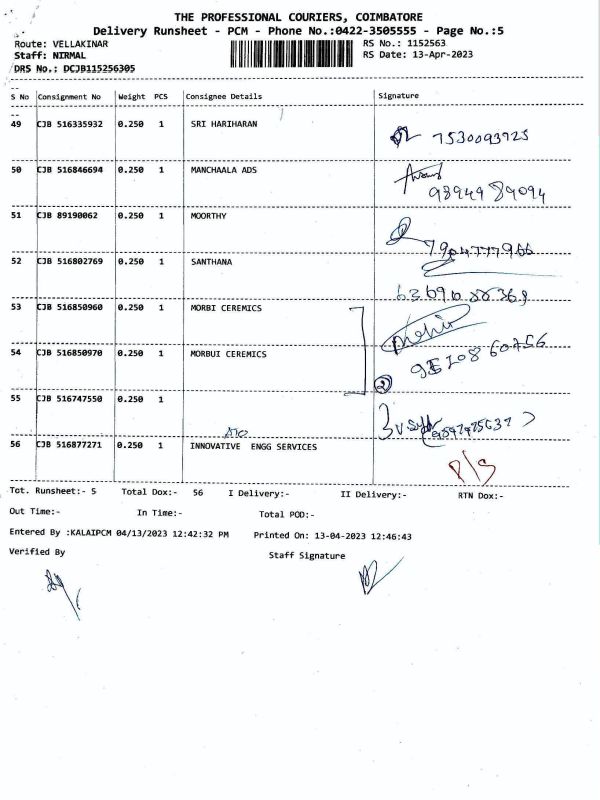 THE PROFESSIONAL COURIERS, COIMBATORE
Delivery Runsheet - PCM - Phone No.:0422-3505555 - Page No.:5
Route: VELLAKINAR RS No.: 1152563
Staff: NIRMAL RS Date: 13-Apr-2023
DRS No.: DCJB115256305
S No Consignment No Weight PCS Consignee Details Signature
49 CJB 516335932 0.250 1 SRI HARIHARAN
7530093725
50 CJB 516846694 0.250 1 MANCHAALA ADS
9894989094
51 CJB 89190062 0.250 1 MOORTHY
7904777966
52 CJB 516802769 0.250 1 SANTHANA
53 CJB 516850960 0.250 1 MORBI CEREMICS
54 CJB 516850970 0.250 1 MORBUI CEREMICS
2
55 CJB 516747550 0.250 1
56 CJB 516877271 0.250 1 INNOVATIVE ENGG SERVICES
P/S
Tot. Runsheet:- 5 Total Dox:- 56 I Delivery:- II Delivery:- RTN Dox:-
Out Time:- In Time:- Total POD:-
Entered By :KALAIPCM 04/13/2023 12:42:32 PM Printed On: 13-04-2023 12:46:43
Verified By Staff Signature